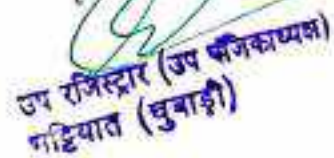 उप रजिस्ट्रार (उप पंजिकाध्यक्ष)
भट्टियात (चुवाड़ी)